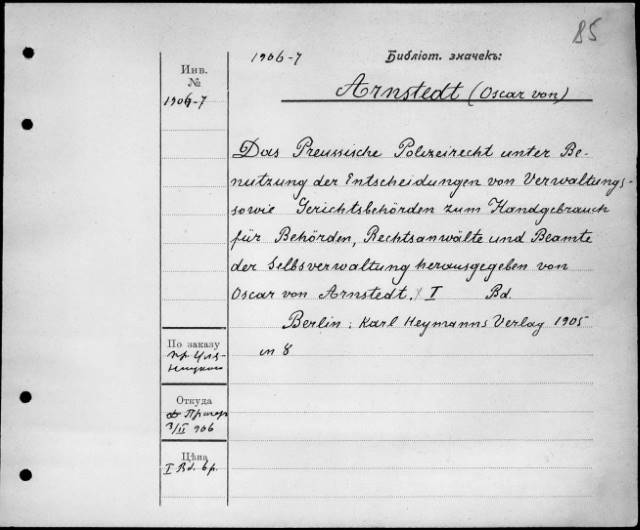 85
1906-7
Библіот. значекъ:
Инв.
№
1906-7
Arnstedt (Oscar von)
Das Preussische Polizeirecht unter Be-
nutzung der Entscheidungen von Verwaltungs-
sowie Gerichtsbehörden zum Handgebrauch
für Behörden, Rechtsanwälte und Beamte
der Selbsverwaltung herausgegeben von
Oscar von Arnstedt. I Bd.
Berlin: Karl Heymanns Verlag 1905
in 8
По заказу
пр.
Откуда
906
Цѣна
I Bd. 6 р.